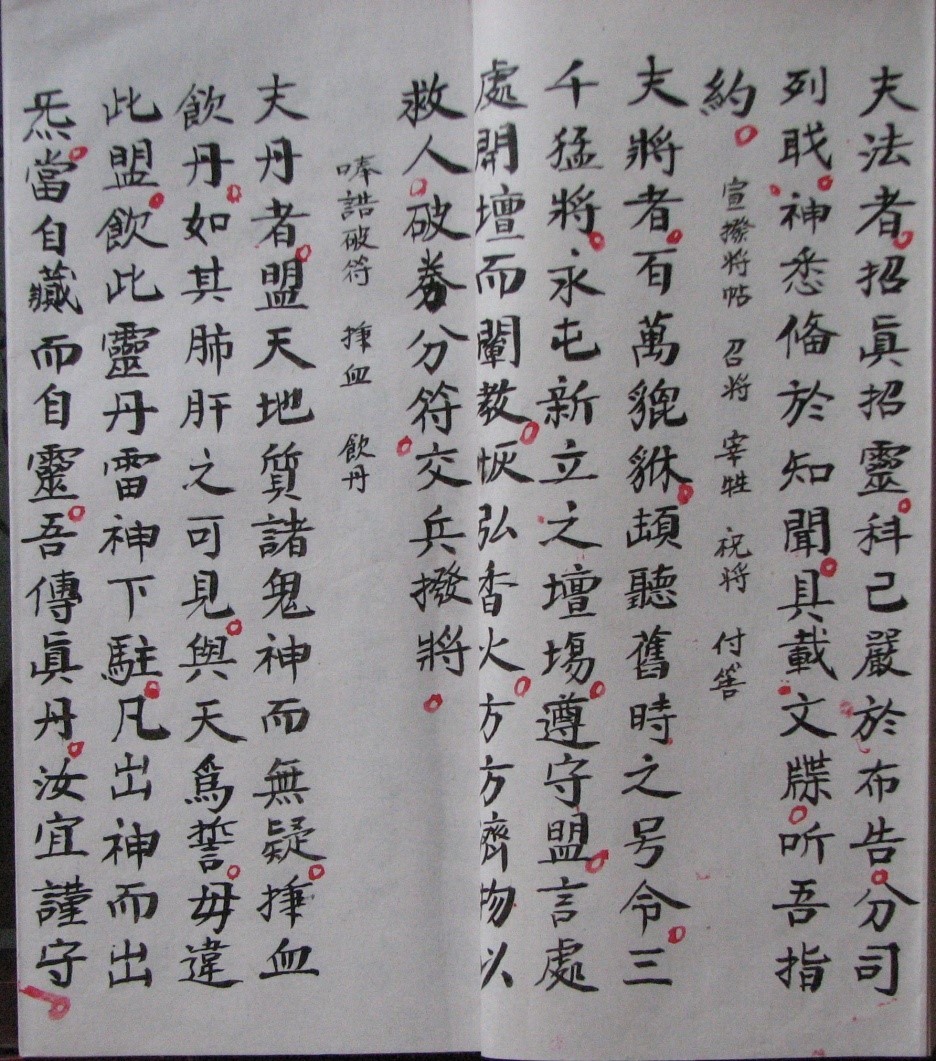 夫法者招眞招靈科己嚴於布告分司
列戝神悉俻於知聞具載文牒听吾指
約 宣撥將帖 召將 宰牲 祝將 付筶
夫將者百萬貔貅頡聽舊時之号令三
千猛將永屯新立之壇塲遵守盟言處
處開壇而闡教恢弘香火方方濟物以
救人破券分符交兵撥將
唪誥破符 㨒血 飲丹
夫丹者盟天地質諸鬼神而無疑㨒血
飲丹如其肺肝之可見與天爲誓毋違
此盟飲此靈丹雷神下駐凡出神而出
炁當自藏而自靈吾傳眞丹汝宜謹守